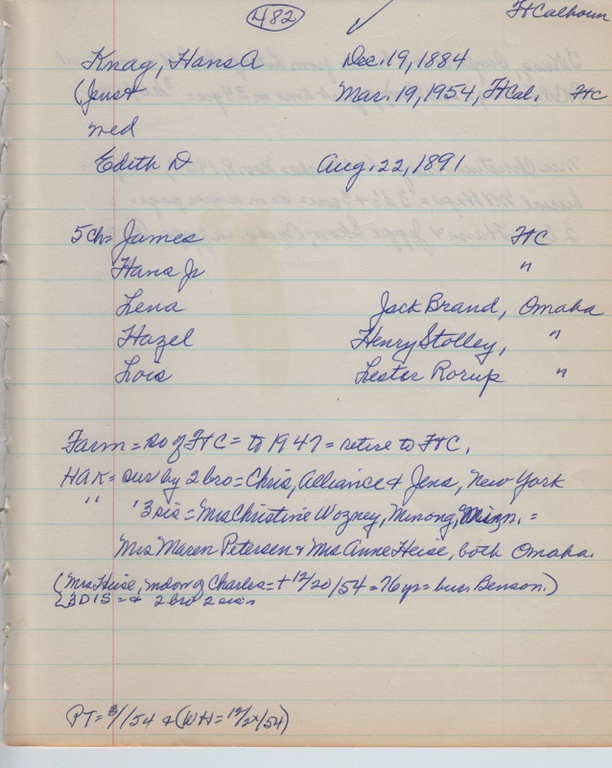 482 ✓ Ft Calhoun
Knag, Hans A Dec. 19, 1884
(Jens+ Mar. 19, 1954, Ft Cal. FtC
med
Edith D Aug. 22, 1891
5 ch = James FtC
Hans Jr "
Lena Jack Brand, Omaha
Hazel Henry Stolley, "
Lois Lester Rorup "
Farm = so of FtC = to 1947 = retire to FtC.
HAK = sur by 2 bro = Chris, Alliance + Jens, New York
" 3 sis = Mrs Christine Wozney, Minong, Minn. =
Mrs Maren Petersen + Mrs Anne Heise, both Omaha.
(Mrs Heise, widow of Charles = + 12/20/54 = 76 yr = bur. Benson.)
2 bro 2 sis
PT = 3/ /54 + (WH = 12/ /54)